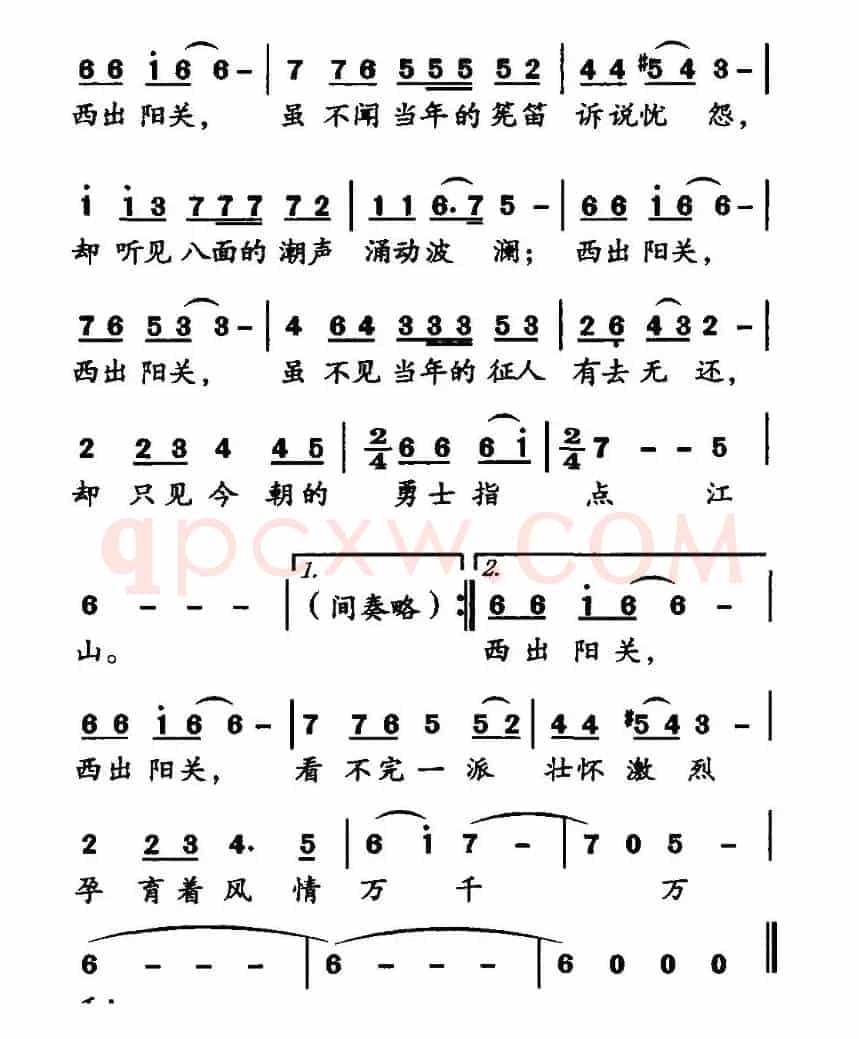 66 i6 6- | 7 76 555 52 | 44 #54 3- |
西出 阳关， 虽 不闻当年的筦笛 诉说忧 怨，
i i3 777 72 | 11 6·7 5 - | 66 i6 6- |
却 听见八面的潮声 涌动波 澜； 西出 阳关，
76 53 3- | 4 64 333 53 | 26 43 2 - |
西出 阳关， 虽 不见当年的征人 有去无 还，
2 23 4 45 | 2/4 66 6i | 2/4 7 - - 5 |
却 只见今 朝的 勇士指 点 江
qpcxw.COM
1. 2.
6 - - - | （间奏略） :‖ 66 i6 6 - |
山。 西出 阳关，
66 i6 6 - | 7 76 5 52 | 44 #54 3 - |
西出 阳关， 看 不完一 派 壮怀 激 烈
2 23 4· 5 | 6 i 7 - | 7 0 5 - |
孕 育着风 情 万 千 万
6 - - - | 6 - - - | 6 0 0 0 ‖